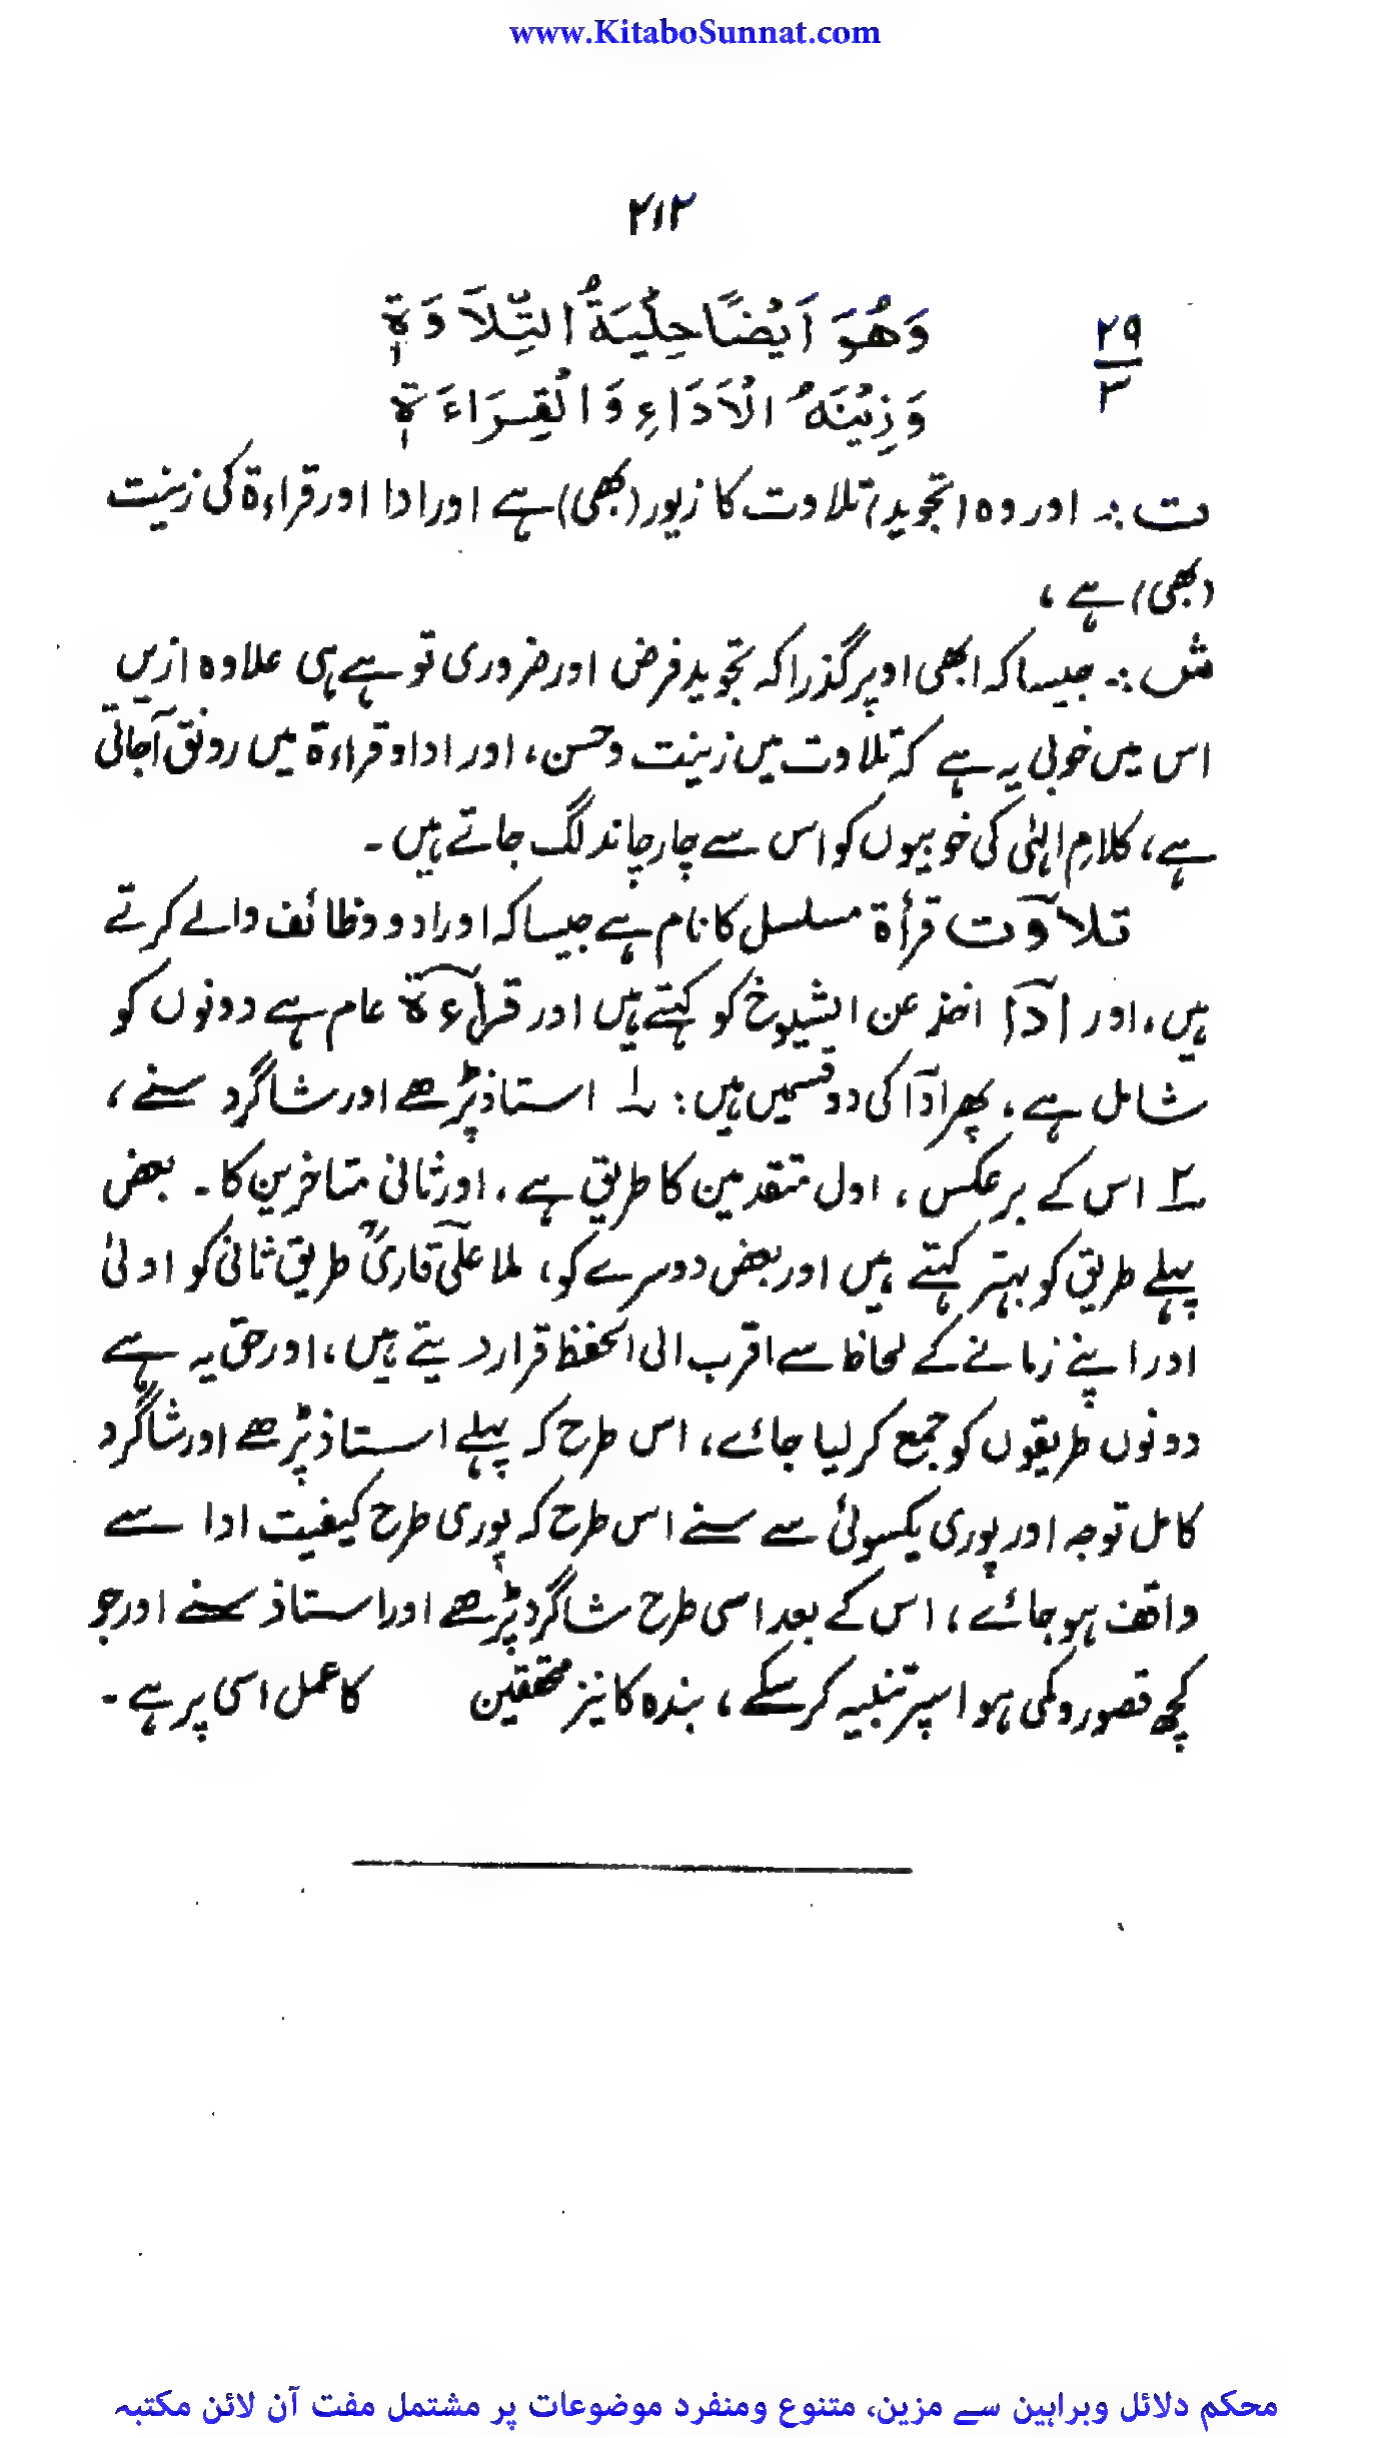 www.KitaboSunnat.com
۲۱۲
وَهُوَ اَيْضًا حِلْيَةُ التِّلَاوَةِ
۲۹
۳
وَزِيْنَةُ الْاَدَاءِ وَالْقِرَاءَةِ
ت :۔ اور وہ (تجوید) تلاوت کا زیور (بھی) ہے اور ادا اور قراءۃ کی زینت
(بھی) ہے ،
ش :۔ جیسا کہ ابھی اوپر گذرا کہ تجوید فرض اور ضروری تو ہے ہی علاوہ ازیں
اس میں خوبی یہ ہے کہ تلاوت میں زینت و حسن، اور ادا و قراءۃ میں رونق آجاتی
ہے، کلامِ الہٰی کی خوبیوں کو اس سے چار چاند لگ جاتے ہیں ۔
تلاوت قرأۃ مسلسل کا نام ہے جیسا کہ اوراد و وظائف والے کرتے
ہیں، اور ادا اخذ عن الشیوخ کو کہتے ہیں اور قراءۃ عام ہے دونوں کو
شامل ہے، پھر ادا کی دو قسمیں ہیں: ۱؎ استاذ پڑھے اور شاگرد سنے ،
۲؎ اس کے برعکس ، اول متقدمین کا طریق ہے ، اور ثانی متاخرین کا ۔ بعض
پہلے طریق کو بہتر کہتے ہیں اور بعض دوسرے کو، ملا علی قاریؒ طریق ثانی کو اولیٰ
اور اپنے زمانے کے لحاظ سے اقرب الی الحفظ قرار دیتے ہیں، اور حق یہ ہے
دونوں طریقوں کو جمع کر لیا جائے، اس طرح کہ پہلے استاذ پڑھے اور شاگرد
کامل توجہ اور پوری یکسوئی سے سنے اس طرح کہ پوری طرح کیفیت ادا سے
واقف ہو جائے ، اس کے بعد اسی طرح شاگرد پڑھے اور استاذ سنے اور جو
کچھ قصور و کمی ہو اسپر تنبیہ کر سکے ، بندہ کا نیز محققین کا عمل اسی پر ہے ۔
محکم دلائل وبراہین سے مزین، متنوع ومنفرد موضوعات پر مشتمل مفت آن لائن مکتبہ